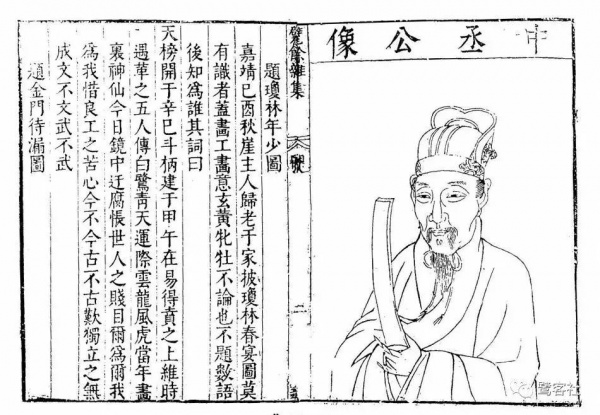 中丞公像
甓餘雜集
二
題瓊林年少圖
嘉靖己酉秋崖主人歸老于家披瓊林春宴圖莫
有識者蓋畫工畫意玄黃牝牡不論也不題數語
後知為誰其詞曰
天榜開于辛巳斗柄建于甲午在易得賁之上維時
遇革之五人傳白鷺青天運際雲龍風虎當年畫
裏神仙今日鏡中迂腐悵世人之賤目爾為爾我
為我惜良工之苦心今不今古不古歎獨立之無
成文不文武不武
題金門待漏圖
鹭客社